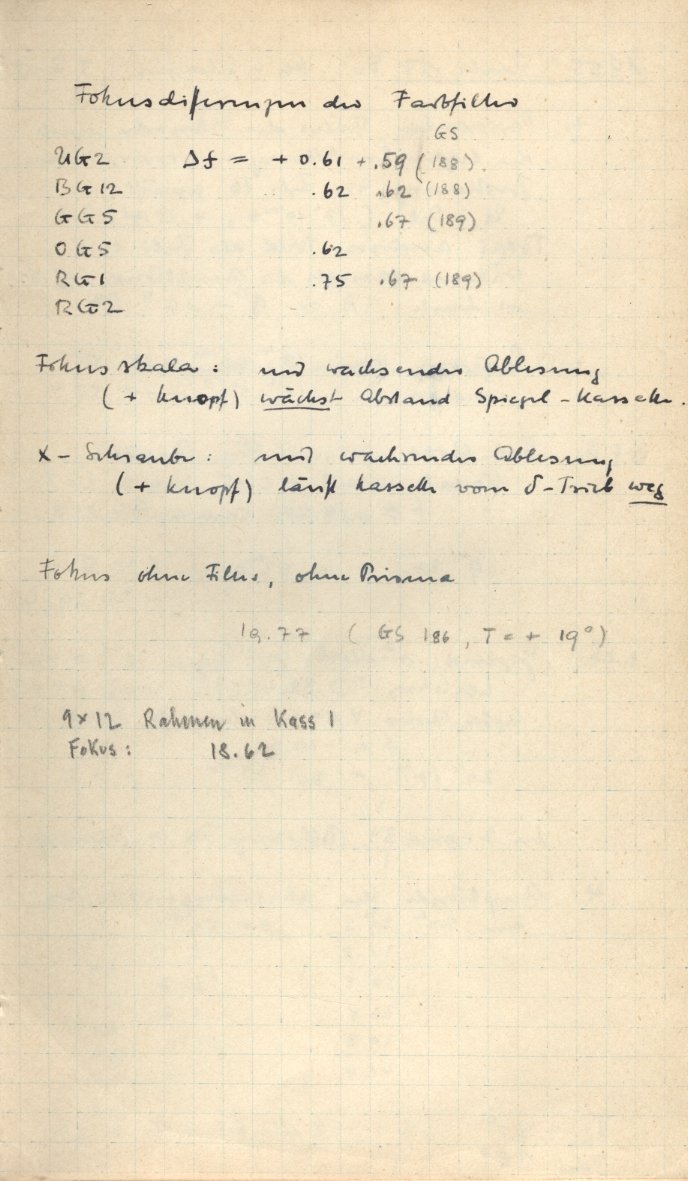 Fokusdifferenzen der Farbfilter
GS
UG2 Δf = + 0.61 + .59 (188)
BG12 .62 .62 (188)
GG5 .67 (189)
OG5 .62
RG1 .75 .67 (189)
RG2
Fokusskala: mit wachsender Ablesung
(+ Knopf) wächst Abstand Spiegel - Kassette.
X - Schraube: mit wachsender Ablesung
(+ Knopf) läuft Kassette vom δ-Trieb weg
Fokus ohne Filter, ohne Prisma
19.77 (GS 186, T = + 19°)
9x12 Rahmen in Kass 1
Fokus: 18.62